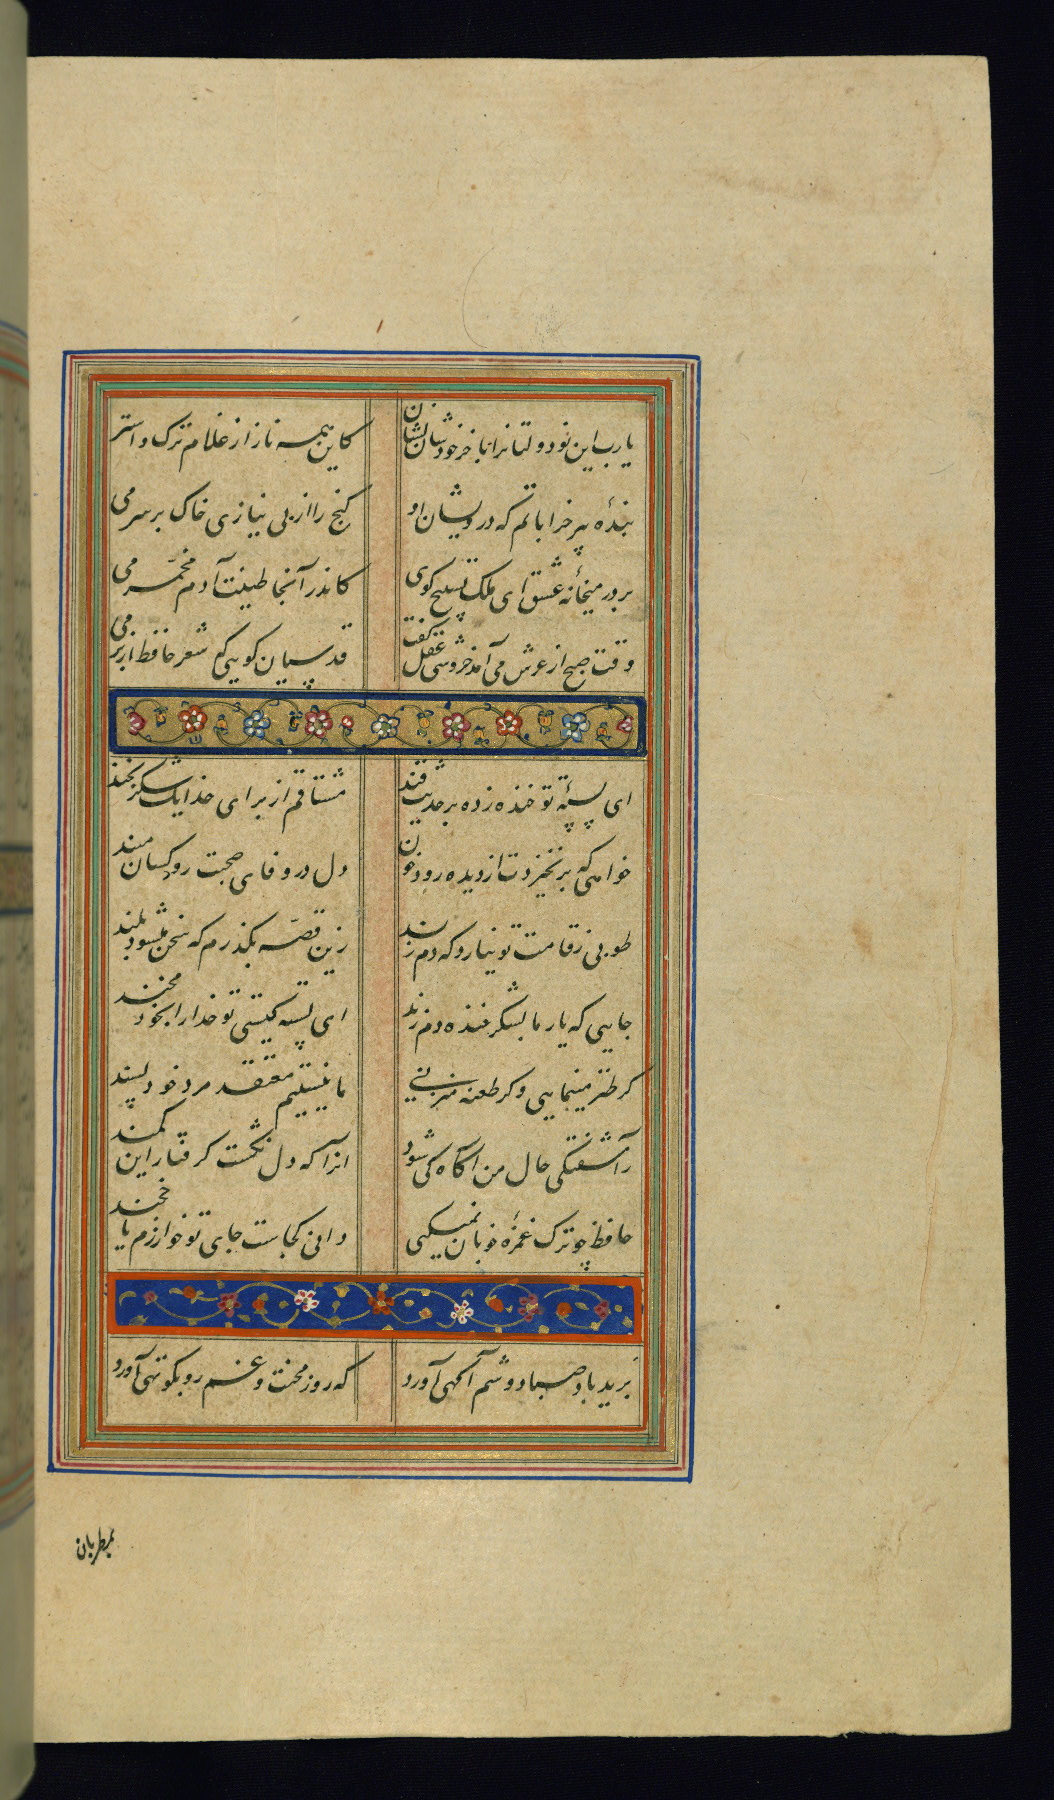 یارب این نودولتانرا با خر خودشان نشان کاین همه ناز از غلام ترک و استر
بندهٔ پیر خراباتم که درویشان او کنج را از بی نیازی خاک بر سر می
بر در میخانهٔ عشق ای ملک تسبیح کوی کاندر آنجا طینت آدم مخمّر می
وقت صبح از عرش می آمد خروشی عقل کفت قدسیان کویی که شعر حافظ از بر می
ای پستهٔ تو خنده زده بر حدیث قند مشتاقم از برای خدا یک شکر بخند
خواهی که بر نخیزدت از دیده رود خون دل در وفای صحبت رود کسان مبند
طوبی ز قامت تو نیارد که دم زند زین قصّه بکذرم که سخن میشود بلند
جایی که یار ما بشکر خنده دم زند ای پسته کیستی تو خدا را بخود مخند
کر طنز مینمایی و کر طعنه میزنی ما نیستیم معتقد مرد خود پسند
ز آشفتکی حال من آکاه کی شود آنرا که دل نکشت کرفتار این کمند
حافظ چو ترک غمزهٔ خوبان نمیکنی دانی کجاست جای تو خوارزم یا خجند
برید باد صبا دوشم آکهی آورد که روز محنت و غم رو بکوتهی آورد
بمطربان